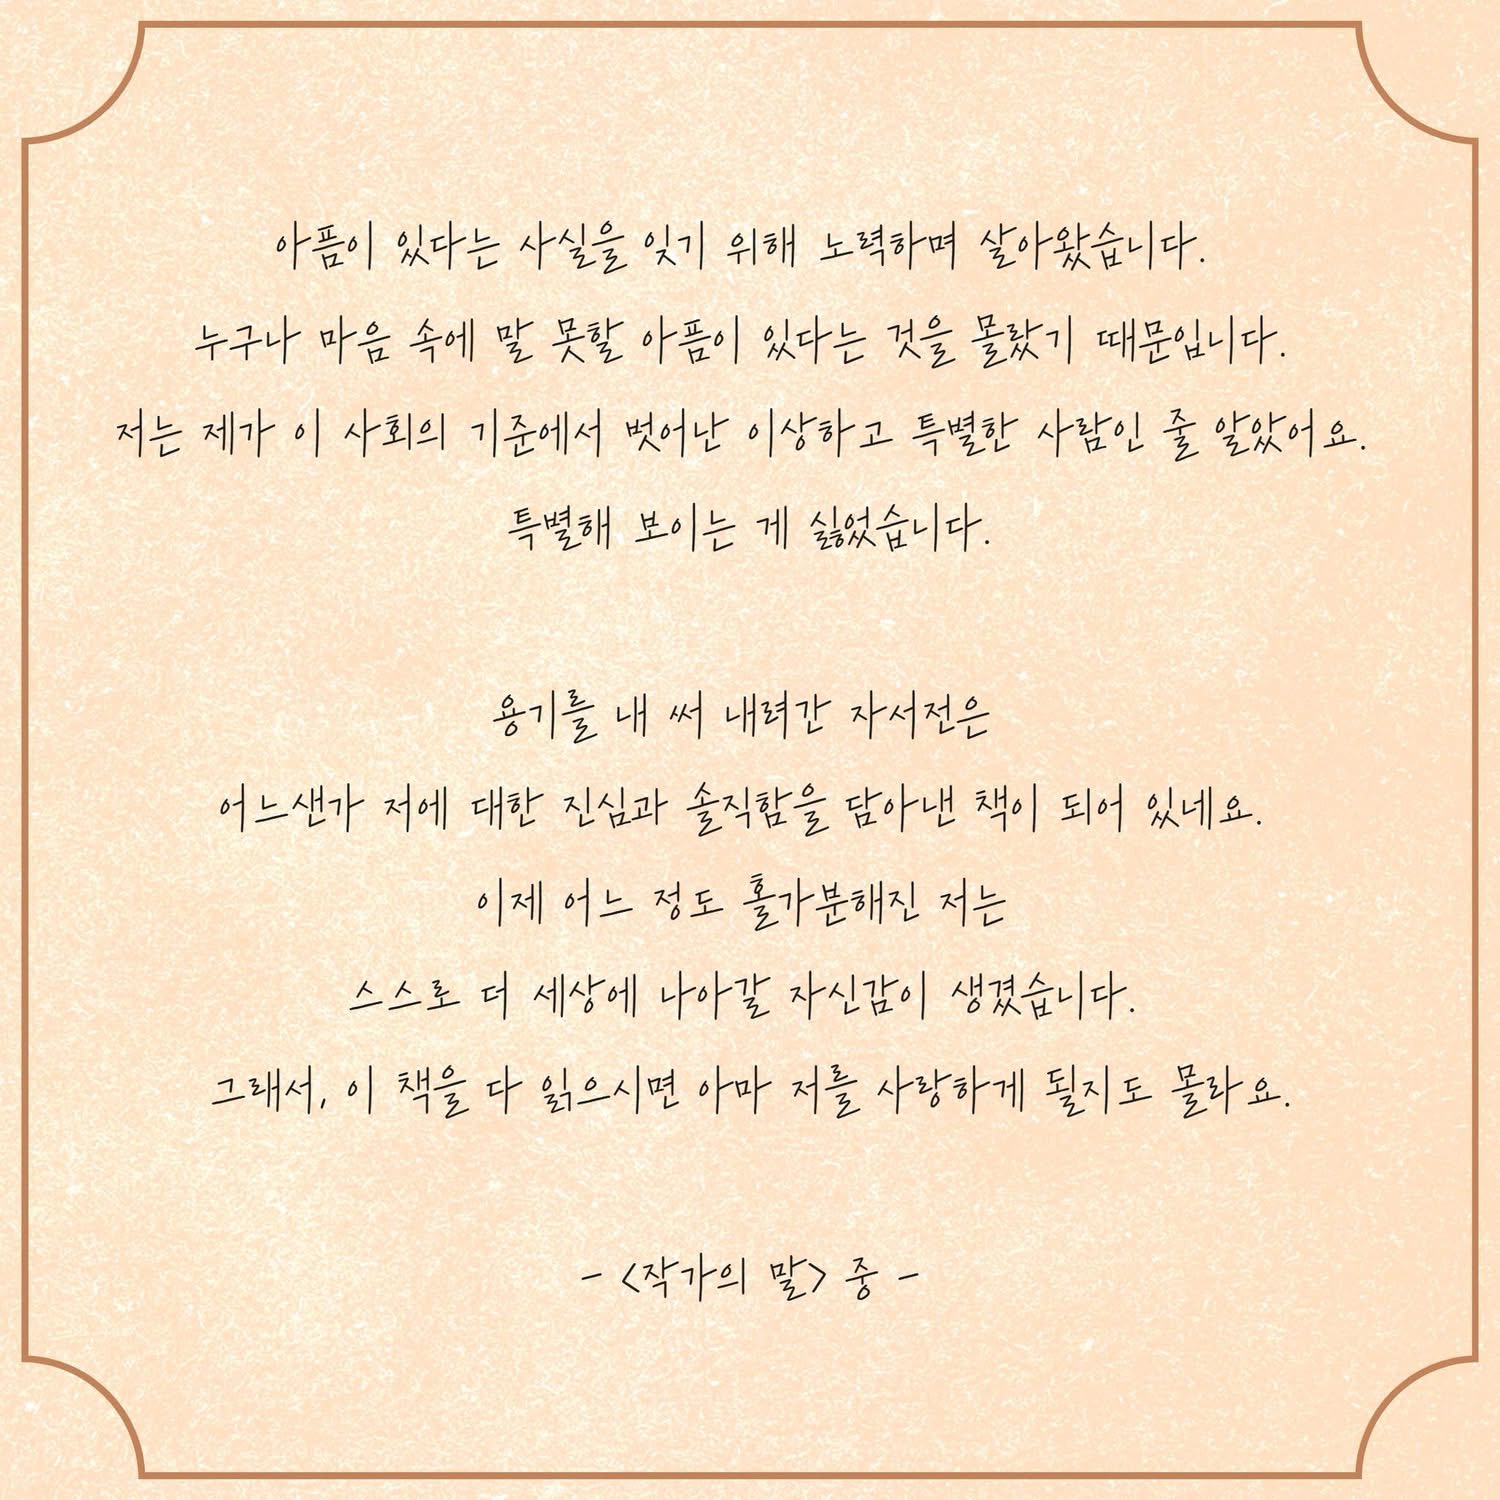 아픔이 있다는 사실을 잊기 위해 노력하며 살아왔습니다.
누구나 마음 속에 말 못할 아픔이 있다는 것을 몰랐기 때문입니다.
저는 제가 이 사회의 기준에서 벗어난 이상하고 특별한 사람인 줄 알았어요.
특별해 보이는 게 싫었습니다.
용기를 내 써 내려간 자서전은
어느샌가 저에 대한 진심과 솔직함을 담아낸 책이 되어 있네요.
이제 어느 정도 홀가분해진 저는
스스로 더 세상에 나아갈 자신감이 생겼습니다.
그래서, 이 책을 다 읽으시면 아마 저를 사랑하게 될지도 몰라요.
- <작가의 말> 중 -